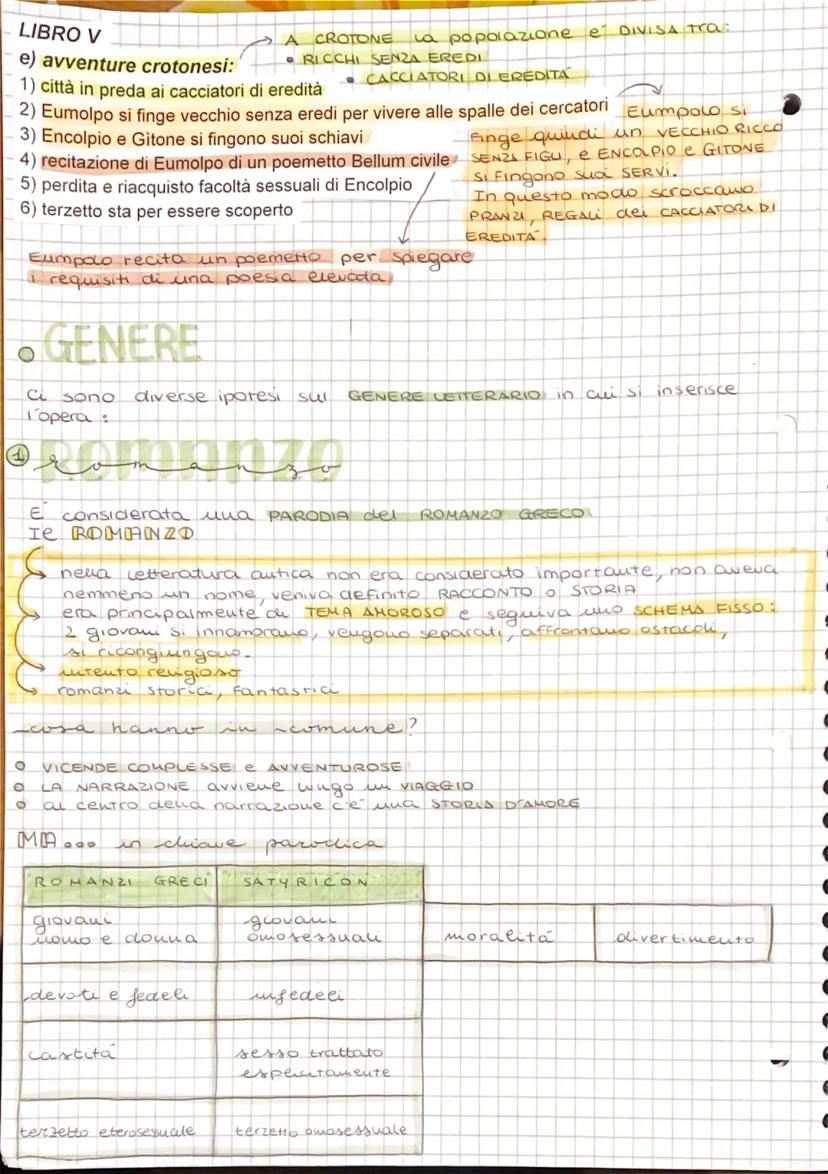 LIBRO V
A CROTONE la popolazione e' DIVISA tra:
• RICCHI SENZA EREDI
• CACCIATORI DI EREDITÀ
e) avventure crotonesi:
1) città in preda ai cacciatori di eredità
2) Eumolpo si finge vecchio senza eredi per vivere alle spalle dei cercatori
3) Encolpio e Gitone si fingono suoi schiavi
4) recitazione di Eumolpo di un poemetto Bellum civile
5) perdita e riacquisto facoltà sessuali di Encolpio
6) terzetto sta per essere scoperto
Eumpolo si
finge quindi un VECCHIO RICCO
SENZA FIGLI, e ENCOLPIO e GITONE
si fingono suoi SERVI.
In questo modo scroccano
PRANZI, REGALI dei CACCIATORI DI
EREDITÀ.
Eumpolo recita un poemetto per spiegare
i requisiti di una poesia elevata
GENERE
Ci sono diverse ipotesi sul GENERE LETTERARIO in cui si inserisce
l'opera:
1 romanzo
È considerata una PARODIA del ROMANZO GRECO.
Ie ROMANZO
nella letteratura antica non era considerato importante, non aveva
nemmeno un nome, veniva definito RACCONTO o STORIA
era principalmente di TEMA AMOROSO e seguiva uno SCHEMA FISSO:
2 giovani si innamorano, vengono separati, affrontano ostacoli,
si ricongiungono.
intento religioso
romanzi storici, fantastici
cosa hanno in comune?
VICENDE COMPLESSE e AVVENTUROSE
LA NARRAZIONE avviene lungo un VIAGGIO
al centro della narrazione c'è una STORIA D'AMORE
MA... in chiave parodica
ROMANZI GRECI SATYRICON
giovani giovani
uomo e donna omosessuali moralità divertimento
devoti e fedeli infedeli
castità sesso trattato
esplicitamente
terzetto eterosessuale terzetto omosessuale